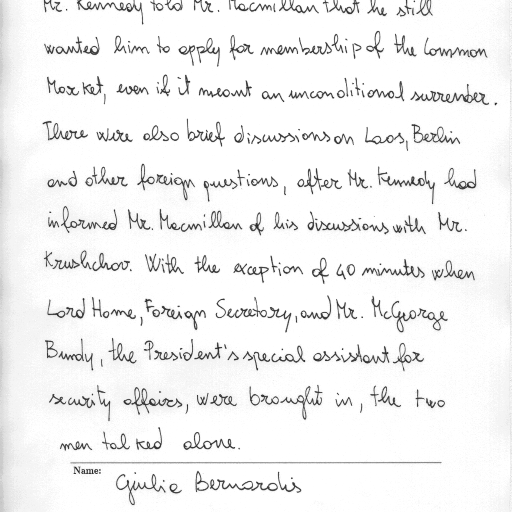 Mr. Kennedy told Mr. Macmillan that he still
wanted him to apply for membership of the Common
Market, even if it meant an unconditional surrender.
There were also brief discussions on Laos, Berlin
and other foreign questions, after Mr. Kennedy had
informed Mr. Macmillan of his discussions with Mr.
Krushchov. With the exception of 40 minutes when
Lord Home, Foreign Secretary, and Mr. McGeorge
Bundy, the President's special assistant for
security affairs, were brought in, the two
men talked alone.
Name:
Giulia Bernardis